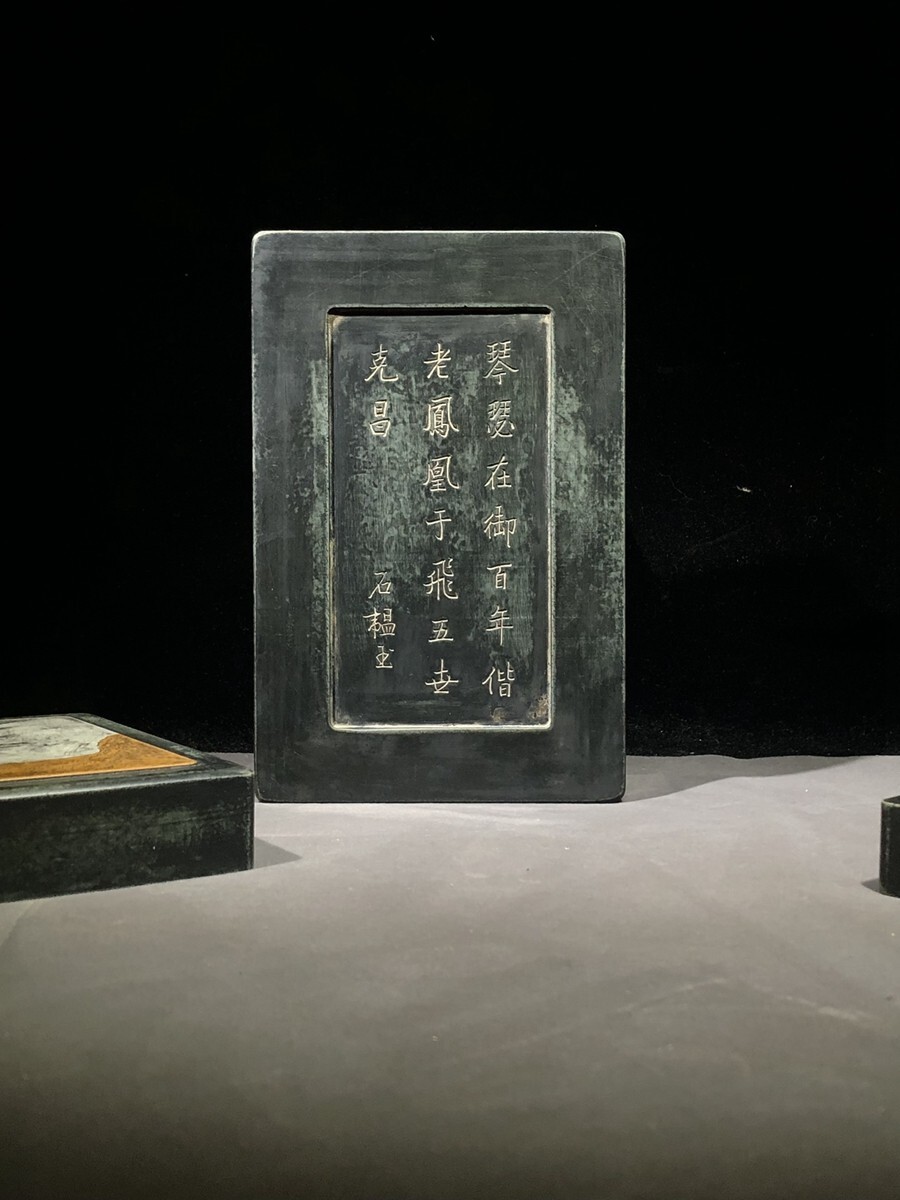 琴瑟在御百年偕
老鳳凰于飛五世
克昌 石韞玉